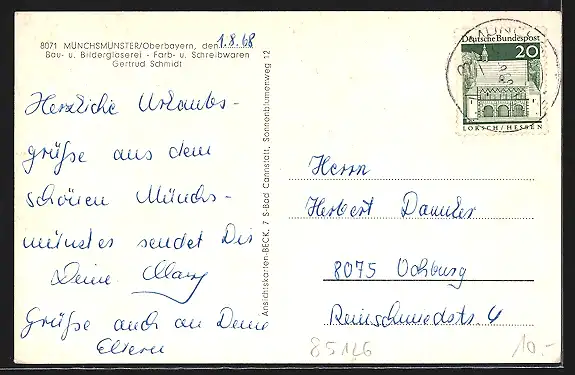 8071 MÜNCHSMÜNSTER/Oberbayern, den 1.8.68
Bau- u. Bilderglaserei - Farb- u. Schreibwaren
Gertrud Schmidt
Herzliche Urlaubs-
grüße aus dem
schönen Münchs-
münster sendet Dir
Deine Mary
Grüße auch an Deine
Eltern
Ansichtskarten-BECK, 7 S-Bad Cannstatt, Sonnenblumenweg 12
Deutsche Bundespost
20
LORSCH/HESSEN
Herrn
Herbert
8075 Vohburg
Reinschmiedstr. 4
85126
10.-